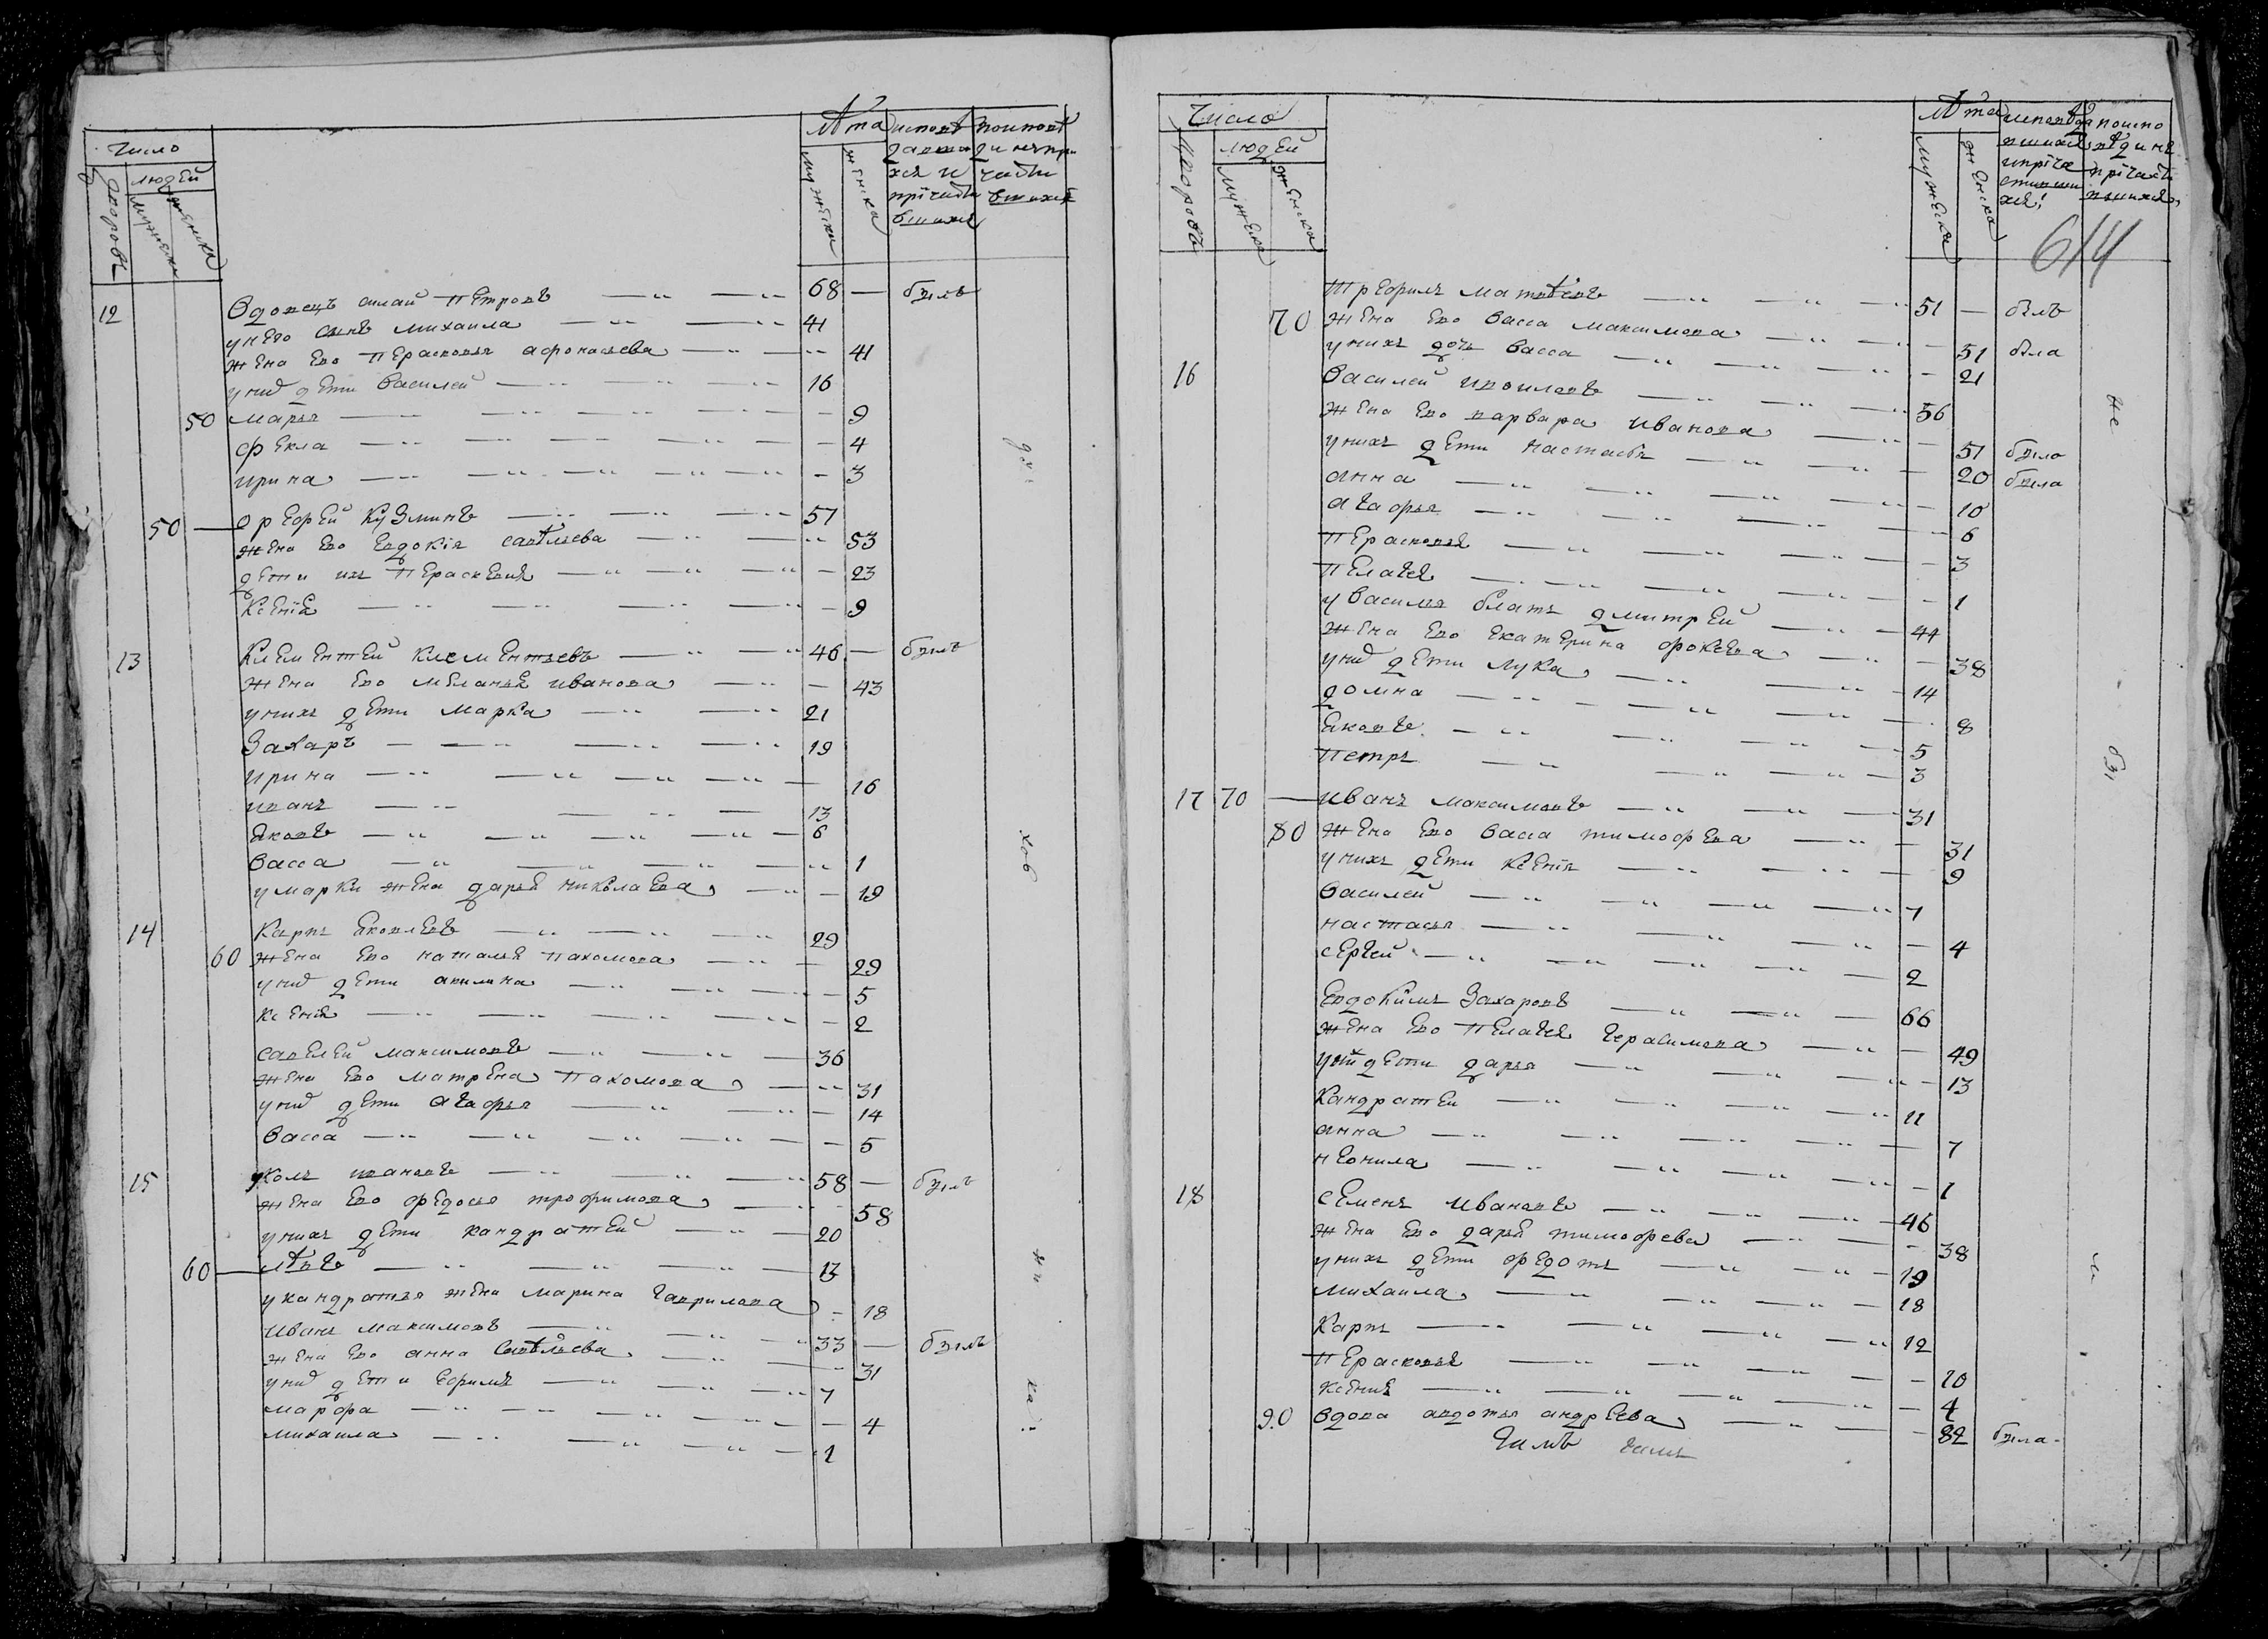 Число
людей
дворовъ
мужеска
женска
Лѣта
мужеска
женска
исповѣдавшихся и причастившихся
по исповѣди не причастившихся
12 Вдовецъ силай петровъ 68 — былъ
у него сынъ михаила 41
жена ево перасковья афонасьева 41
у них дети василей 16
50 марья 9
фекла 4
ирина 3
50 — ефрей Кузминъ 57
жена ево евдокія савѣльева 53
дети ихъ перасковия 23
ксенія 9
13 Клементей клементьевъ 46 — былъ
жена ево меланья иванова 43
у нихъ дети марка 21
Захаръ 19
ирина 16
иванъ 13
яковъ 6
васса 1
у марки жена дарья николаева 19
14 Карпъ яковлевъ 29
60 жена ево наталья пахомова 29
у них дети акилина 5
ксения 2
савелей максимовъ 36
жена ево матрена пахомова 31
у них дети агафья 14
васса 5
15 иванавъ 58 — былъ
жена ево федосья трофимова 58
у нихъ дети кандратей 20
60 — лѣвъ 13
у кандратья жена марина гаврилова 18
иванъ максимовъ 33 — былъ
жена ево анна савѣльева 31
у них дети ефимъ 7
марфа 4
михаила 1
Число
людей
дворовъ
мужеска
женска
Лѣта
мужеска
женска
исповѣдавшихся и причастившихся
по исповѣди не причастившихся
614
трефилъ матвѣевъ 51 — былъ
70 жена ево васса максимова 51 была
у нихъ дочь васса 21
16 василей 56
жена ево варвара иванова 51 была
у нихъ дети настасья 20 была
анна 10
агафья 6
перасковья 3
пелагея 1
у василья братъ дмитрей 44
жена ево екатерина фокеева 38
у них дети лука 14
домна 8
яковъ 5
петръ 3
17 70 — иванъ максимовъ 31
80 жена ево васса тимофеева 31
у нихъ дети ксения 9
василей 7
настасья 4
сергей 2
евдокимъ Захаровъ 66
жена ево пелагея герасимова 49
у них дети дарья 13
кандратей 11
анна 7
неонила 1
18 семенъ ивановъ 46
жена ево дарья тимофеева 38
у нихъ дети федотъ 19
михаила 18
карпъ 12
перасковья 10
ксения 4
90 вдова авдотья андреева 82 была